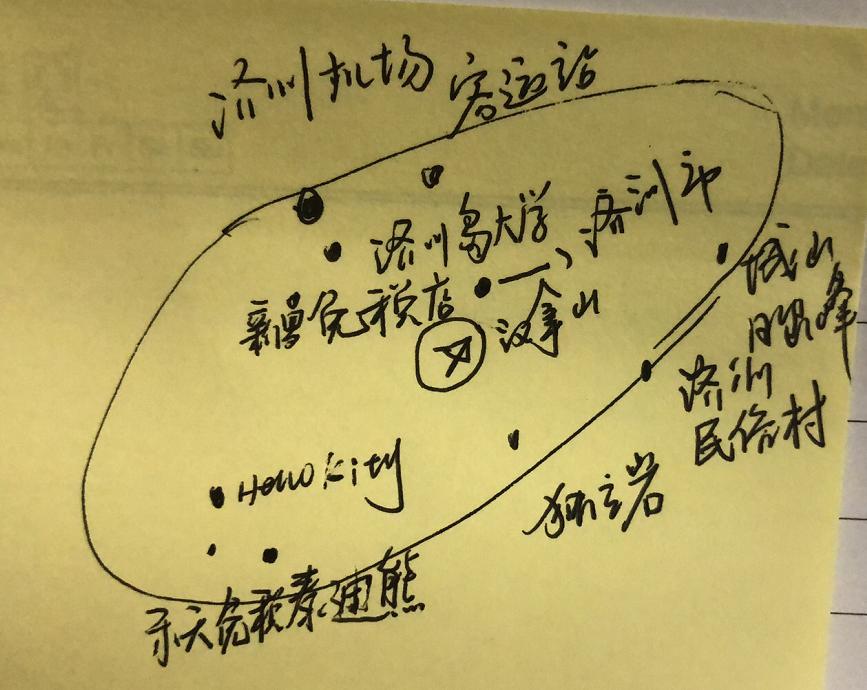 济州机场 客运站
济州岛大学
济州市
新罗免税店
汉拿山
城山
日出峰
济州
民俗村
Hello kitty
独立岩
乐天免税泰迪熊